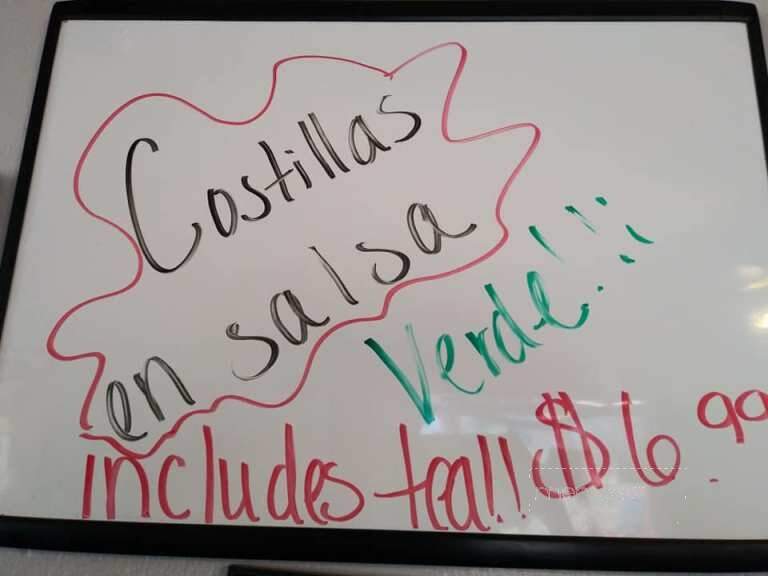 Costillas
en salsa
Verde!!!
includes tea!! $6.99